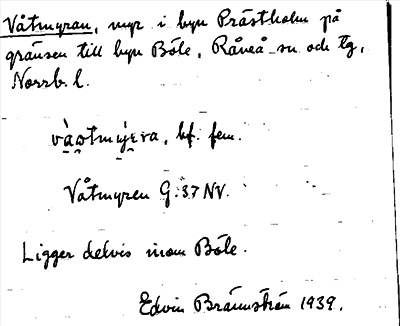 Våtmyran, myr i byn Prästholm på
gränsen till byn Böle, Råneå sn och tg,
Norrb. l.
bf. fem.
Våtmyren G:37 NV.
Ligger delvis inom Böle.
Edvin Brännström 1939.